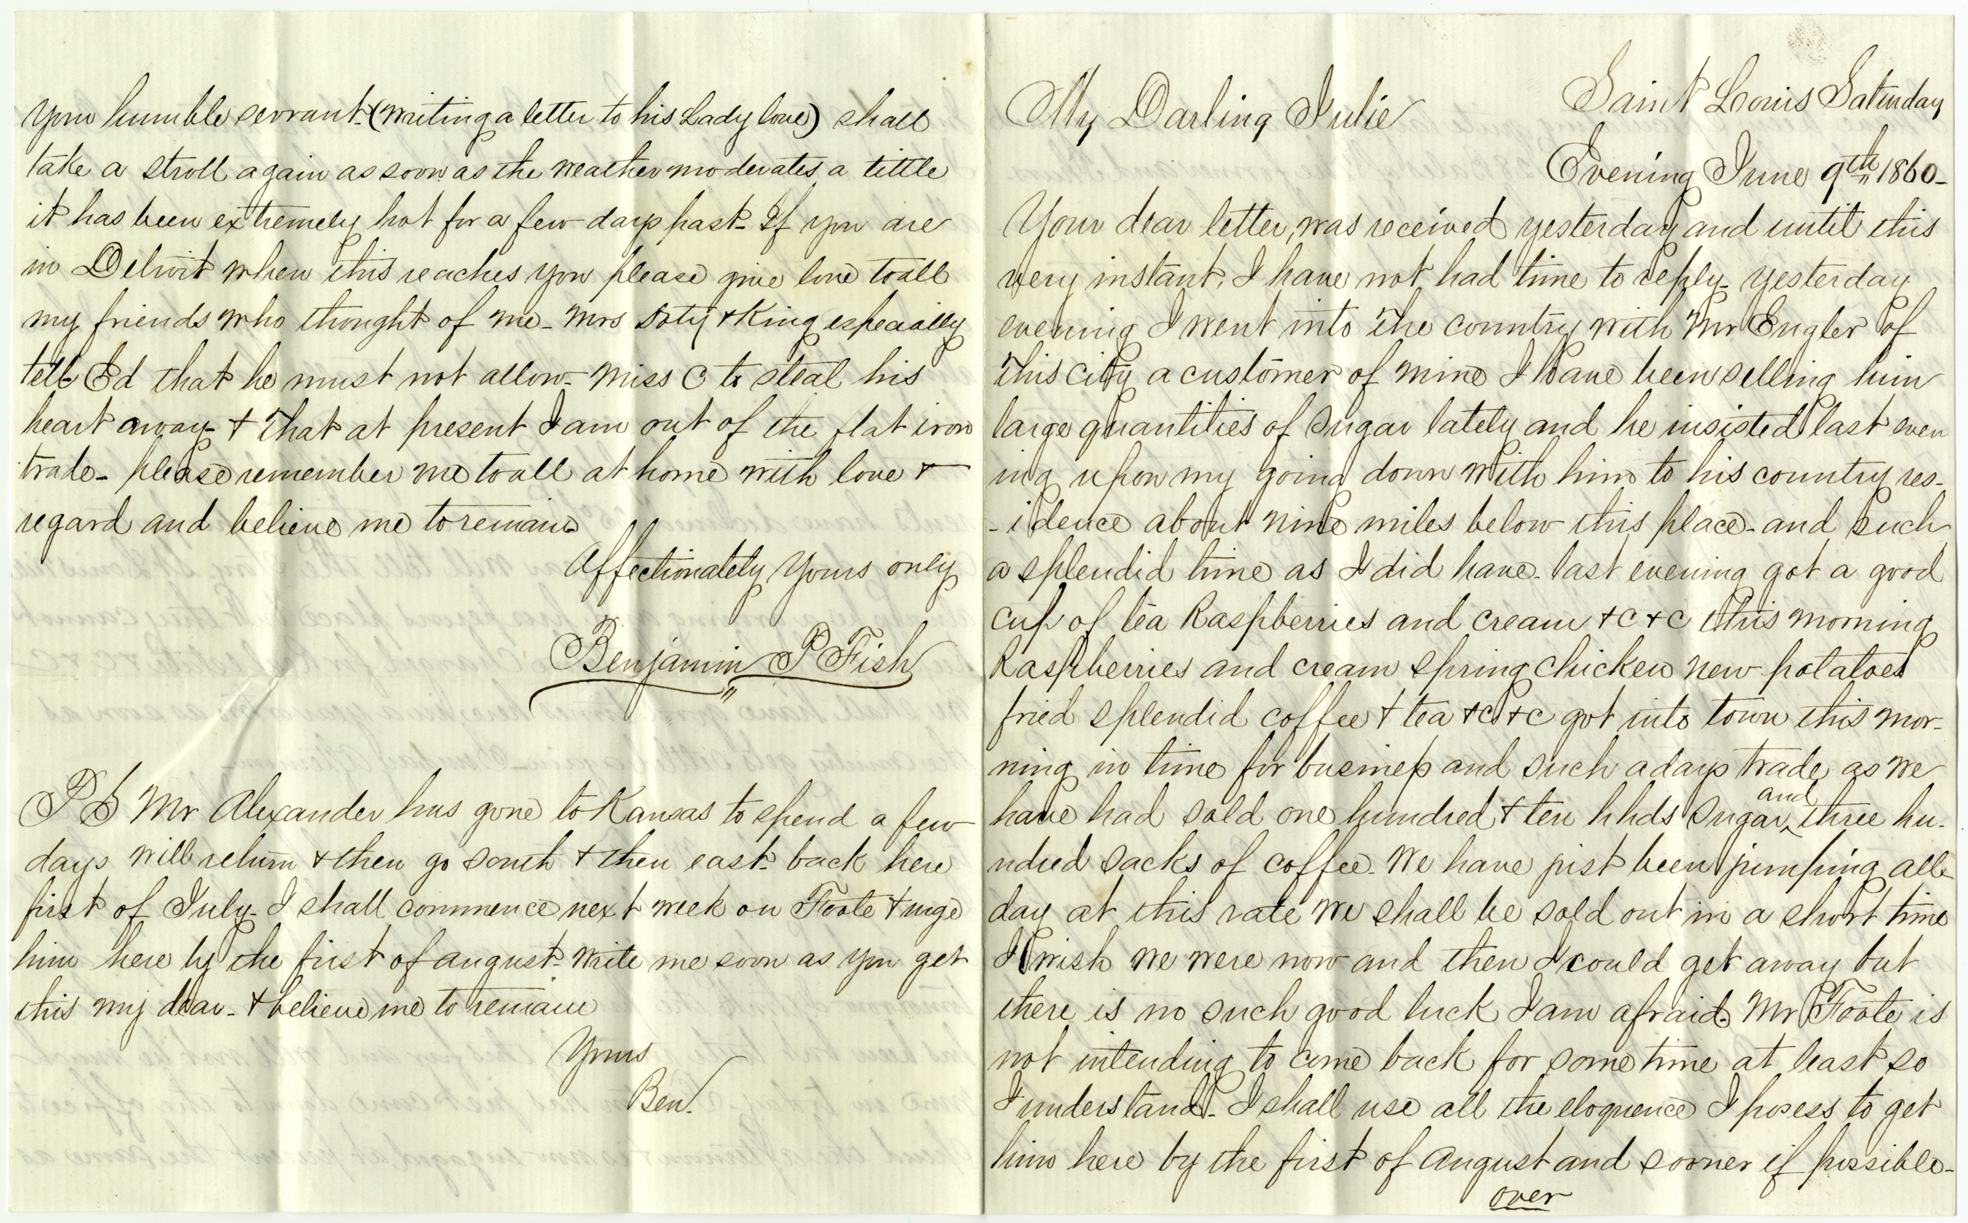 Saint Louis Saturday
My Darling Julie
Evening June 9th 1860-
Your dear letter, was received yesterday and until this
very instant, I have not had time to reply- yesterday
evening I went into the country with Mr Engler of
this city a customer of mine I have been selling him
large quantities of sugar lately and he insisted last even
ing upon my going down with him to his country res-
-idence about nine miles below this place- and such
a splendid time as I did have- last evening got a good
cup of tea Raspberries and cream +c +c this morning
Raspberries and cream Spring Chicken new potatoes
fried splendid coffee + tea +c +c got into town this mor-
ning in time for business and such a days trade as we
have had sold one hundred + ten hhds Sugar, and three hu-
ndred sacks of coffee- We have just been jumping all
day at this rate we shall be sold out in a short time
I wish we were now and then I could get away but
there is no such good luck I am afraid- Mr Foote is
not intending to come back for some time at least so
I understand- I shall use all the eloquence I posess to get
him here by the first of August and sooner if possible-
over
Your humble servant (writing a letter to his Lady love) shall
take a stroll again as soon as the weather moderates a little
it has been extremely hot for a few days past- If you are
in Detroit when this reaches you please give love to all
my friends who thought of me- Mrs Doty + King especially
tell Ed that he must not allow- Miss C to steal his
heart away- + that at present I am out of the flat iron
trade- please remember me to all at home with love +
regard and believe me to remain
Affectionately Yours only
Benjamin P Fish
P S Mr Alexander has gone to Kansas to spend a few
days will return + then go south + then east- back here
first of July- I shall commence next week on Foote + urge
him here by the first of August- Write me soon as you get
this my dear- + believe me to remain
Yours
Ben.